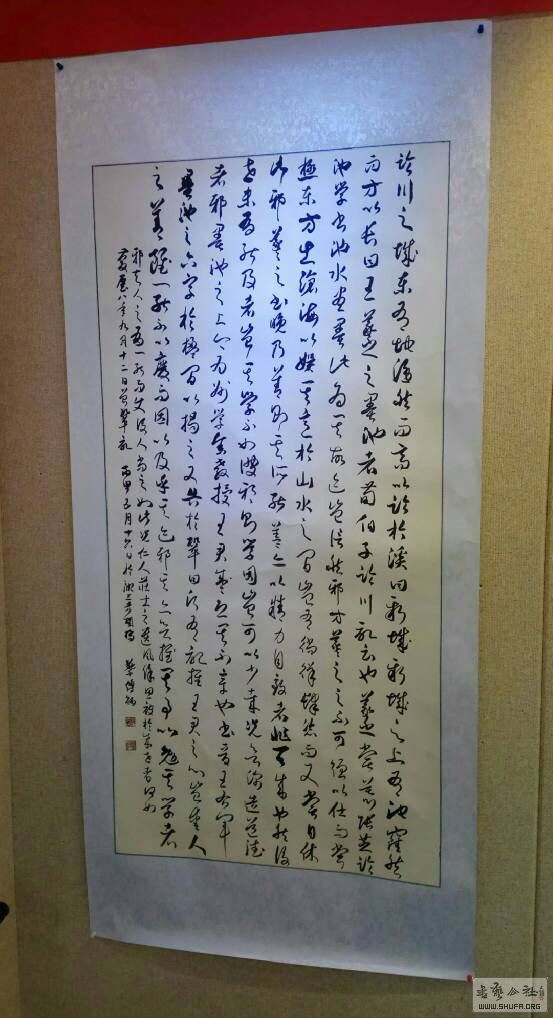 臨川之城東有地隱然而高以臨於溪曰新城新城之上有池窪然
而方以長曰王羲之之墨池者荀伯子臨川記云也羲之嘗慕張芝臨
池學書池水盡黑此為其故迹豈信然邪方羲之之不可強以仕而嘗
極東方出滄海以娛其意於山水之間豈有徜徉肆恣而又嘗自休
於此邪羲之之書晚乃善則其所能蓋亦以精力自致者非天成也然後
世未有能及者豈其學不如彼邪則學固豈可以少哉況欲深造道德
者邪墨池之上今為州學舍教授王君盛恐其不章也書晉王右軍
墨池之六字於楹間以揭之又告於鞏曰願有記推王君之心豈愛人
之善雖一能不以廢而因以及乎其迹邪其亦欲推其事以勉其學者
邪夫人之有一能而使後人尚之如此況仁人莊士之遺風餘思被於來世者何如
慶曆八年九月十二日曾鞏記 丙申五月十六日於
書藝公社
WWW.SHUFA.ORG